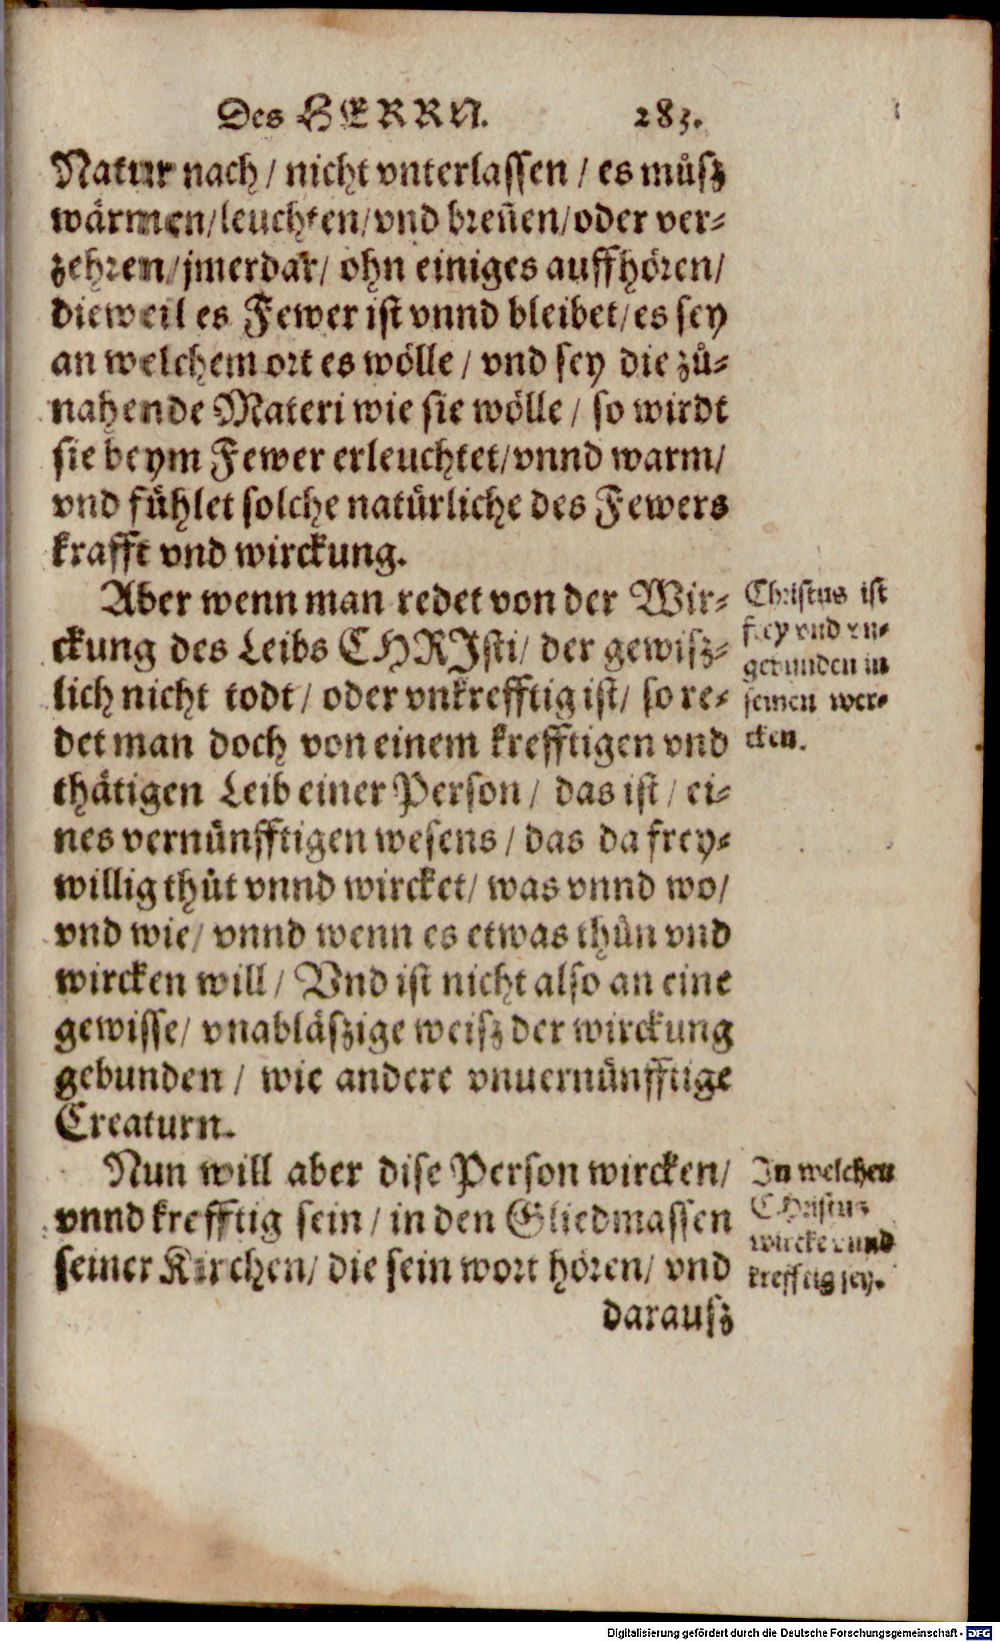 Des HERRN. 283.
Natur nach / nicht vnterlassen / es můsz
wärmen/leuchten/vnd breñen/oder ver-
zehren/jmerdar/ ohn einiges auffhören/
dieweil es Fewer ist vnnd bleibet/es sey
an welchem ort es wölle / vnd sey die zů-
nahende Materi wie sie wölle / so wirdt
sie beym Fewer erleuchtet/vnnd warm/
vnd fühlet solche natürliche des Fewers
krafft vnd wirckung.
Aber wenn man redet von der Wir-
ckung des Leibs CHRJsti/ der gewisz-
lich nicht todt / oder vnkrefftig ist/ so re-
det man doch von einem krefftigen vnd
thätigen Leib einer Person / das ist / ei-
nes vernünfftigen wesens / das da frey-
willig thůt vnnd wircket/ was vnnd wo/
vnd wie/ vnnd wenn es etwas thůn vnd
wircken will / Vnd ist nicht also an eine
gewisse/ vnabläszige weisz der wirckung
gebunden / wie andere vnuernünfftige
Creaturn.
Christus ist
frey vnd vn-
gebunden in
seinen wer-
cken.
Nun will aber dise Person wircken/
vnnd krefftig sein / in den Gliedmassen
seiner Kirchen/ die sein wort hören/ vnd
darausz
In welchen
CHristus
wircke vnnd
krefftig sey.
Digitalisierung gefördert durch die Deutsche Forschungsgemeinschaft - DFG